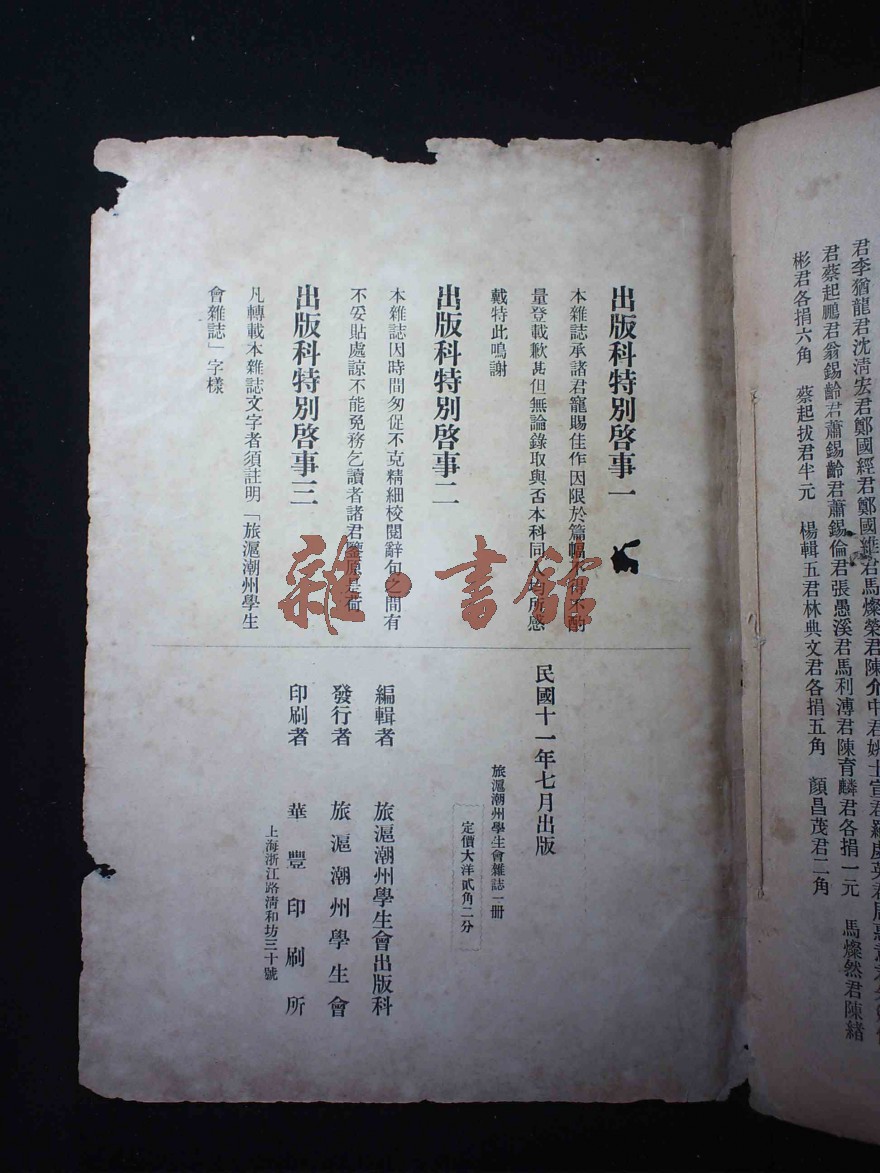 君李猶龍君沈清宏君鄭國經君鄭國維君馬燦榮君陳介中君姚士宣君羅虞英君周
君蔡起鵬君翁錫齡君蕭錫齡君蕭錫倫君張愚溪君馬利溥君陳育麟君各捐一元　馬燦然君陳緒
彬君各捐六角　蔡起拔君半元　楊輯五君林典文君各捐五角　顏昌茂君二角
出版科特別啓事一
本雜誌承諸君寵賜佳作因限於篇幅不得不酌
量登載歉甚但無論錄取與否本科同人均所感
戴特此鳴謝
出版科特別啓事二
本雜誌因時間匆促不克精細校閱辭句之間有
不妥貼處諒不能免務乞讀者諸君鑒原是荷
出版科特別啓事三
凡轉載本雜誌文字者須註明「旅滬潮州學生
會雜誌」字樣
民國十一年七月出版
旅滬潮州學生會雜誌一冊
定價大洋貳角二分
編輯者　旅滬潮州學生會出版科
發行者　旅滬潮州學生會
印刷者　華豐印刷所
上海浙江路清和坊三十號
雜·書館